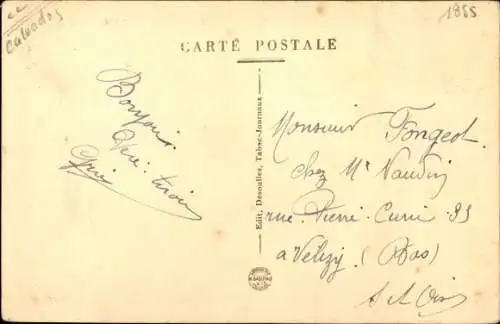 Calvados
1855
CARTE POSTALE
Bonjour
Edit. Desoulles, Tabac-Journaux
Monsieur Fongeot
chez Mr Naudin
rue Pierre Curie 93
a Velizy (Bas)
S et Oise